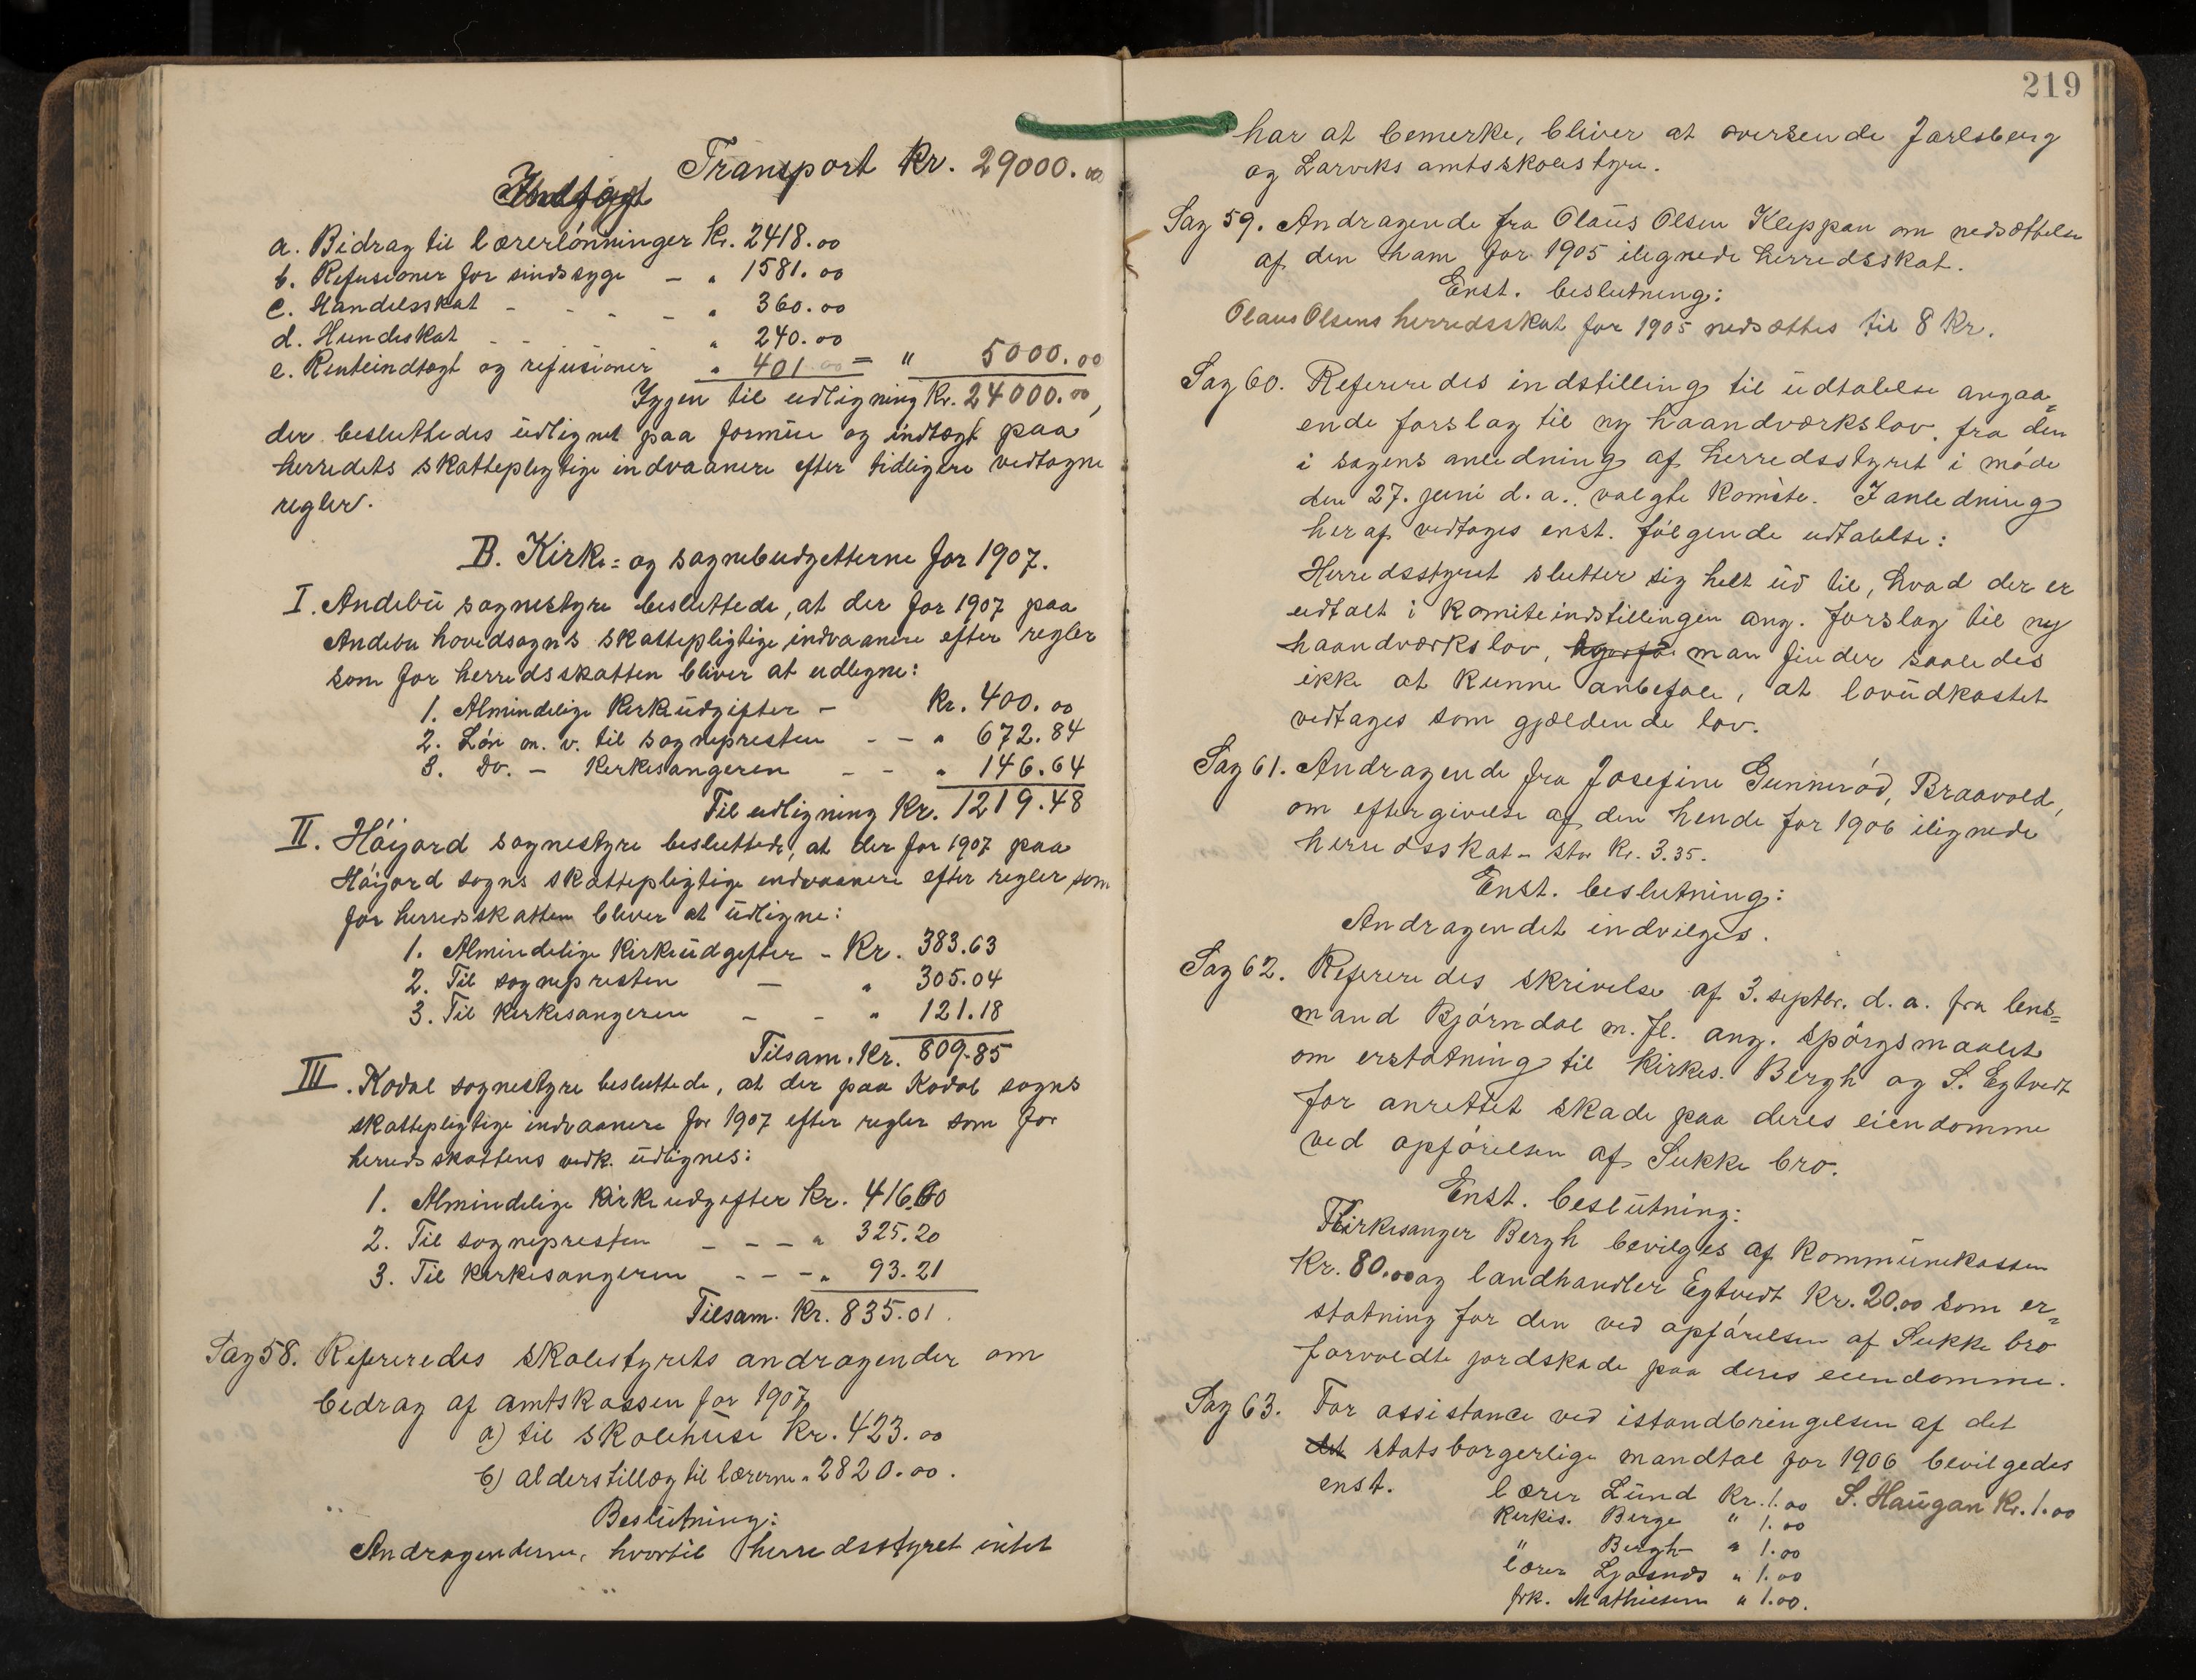 Transport kr. 29000.00
Indtægt
a. Bidrag til lærerlønninger kr. 2418.00
b. Refusioner for sindssyge — " 1581.00
c. Handelsskat - - - - " 360.00
d. Hundeskat - - - " 240.00
e. Renteindtægt og refusioner " 401.00 = " 5000.00
Igjen til udligning kr. 24000.00,
der besluttedes udlignet paa formue og indtægt paa
herredets skattepligtige indvaanere efter tidligere vedtagne
regler.
B. Kirke- og sognebudgetterne for 1907.
I. Andebu sognestyre besluttede, at der for 1907 paa
Andebu hovedsogns skattepligtige indvaanere efter regler
som for herredsskatten bliver at udligne:
1. Almindelige kirkeudgifter — kr. 400.00
2. Løn m. v. til sognepresten - — " 672.84
3. Do. — kirkesangeren - - " 146.64
Til udligning kr. 1219.48
II. Høijord sognestyre besluttede, at der for 1907 paa
Høijord sogns skattepligtige indvaanere efter regler som
for herredsskatten bliver at udligne:
1. Almindelige kirkeudgifter - kr. 383.63
2. Til sognepresten — " 305.04
3. Til kirkesangeren - - " 121.18
Tilsam. kr. 809.85
III. Kodal sognestyre besluttede, at der paa Kodal sogns
skattepligtige indvaanere for 1907 efter regler som for
herredsskattens vedk. udlignes:
1. Almindelige kirkeudgifter kr. 416.60
2. Til sognepresten - - — " 325.20
3. Til kirkesangeren - - - " 93.21
Tilsam. kr. 835.01.
Sag 58. Refereredes skolestyrets andragender om
bidrag af amtskassen for 1907
a) til skolehuse kr. 423.00
b) alderstillæg til lærerne " 2820.00.
Beslutning:
Andragenderne, hvortil herredsstyret intet
219
har at bemerke, bliver at oversende Jarlsberg
og Larviks amtsskolestyre.
Sag 59. Andragende fra Olaus Olsen Kleppan om nedsættelse
af den ham for 1905 ilignede herredsskat.
Enst. beslutning:
Olaus Olsens herredsskat for 1905 nedsættes til 8 kr.
Sag 60. Refereredes indstilling til udtalelse angaa-
ende forslag til ny haandværkslov, fra den
i sagens anledning af herredsstyret i møde
den 27. juni d. a. valgte komite. I anledning
heraf vedtoges enst. følgende udtalelse:
Herredsstyret slutter sig helt ud til, hvad der er
udtalt i komiteindstillingen ang. forslag til ny
haandværkslov, man finder saaledes
ikke at kunne anbefale, at lovudkastet
vedtages som gjældende lov.
Sag 61. Andragende fra Josefine Gunnerød, Braavold,
om eftergivelse af den hende for 1906 ilignede
herredsskat - stor kr. 3.35.
Enst. beslutning:
Andragendet indvilges.
Sag 62. Refereredes skrivelse af 3. septbr. d. a. fra lens-
mand Bjørndal m. fl. ang. spørgsmaalet
om erstatning til kirkes. Bergh og S. Egtvedt
for anrettet skade paa deres eiendomme
ved opførelsen af Sukke bro.
Enst. beslutning:
Kirkesanger Bergh bevilges af kommunekassen
kr. 80.00 og landhandler Egtvedt kr. 20.00 som er-
statning for den ved opførelsen af Sukke bro
forvoldte jordskade paa deres eiendomme.
Sag 63. For assistance ved istandbringelsen af det
det statsborgerlige mandtal for 1906 bevilgedes
enst. lærer Lund kr. 1.00 S. Haugan kr. 1.00
kirkes. Berge " 1.00
" Bergh " 1.00
lærer Ljosnes " 1.00
frk. Mathiesen " 1.00.